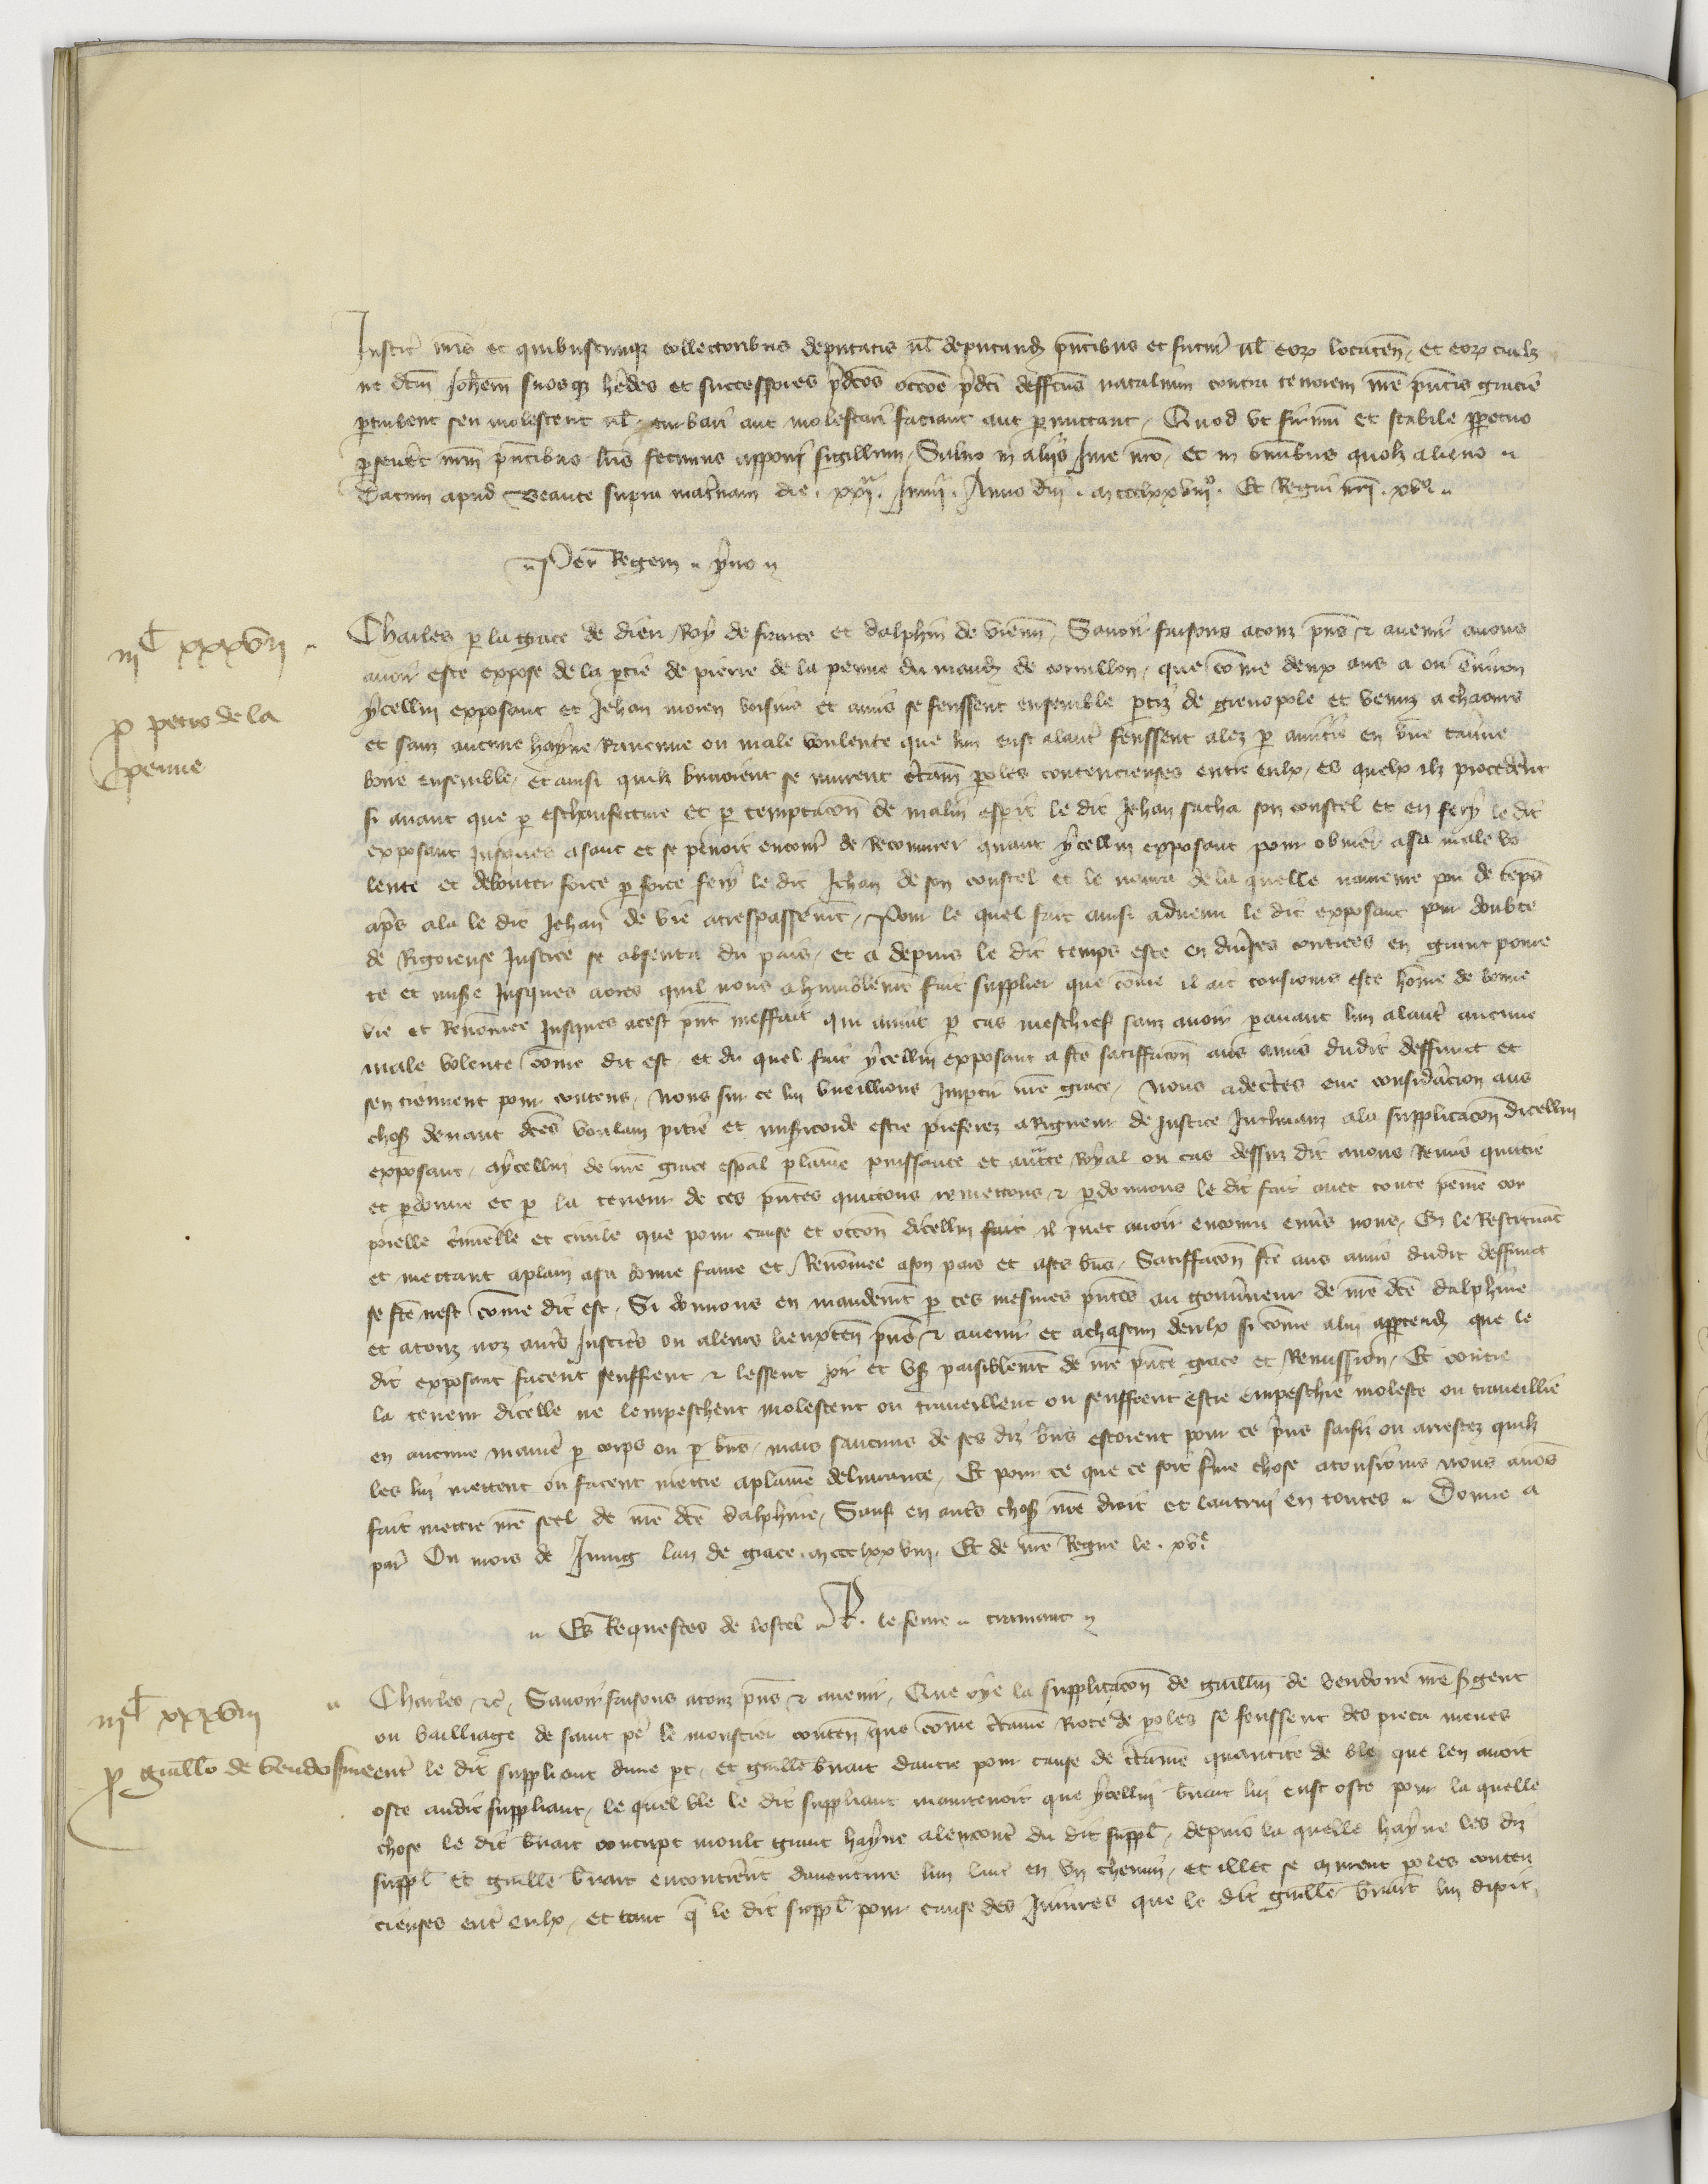 Justic nris et quibuscunque collectoribus deputatis vel deputand pntibus et futur vel eorum locaten, et eorum cuilz
ne dcm Johem suosque hedes et successores pdcos occoe pdci deffcus natalium contra tenorem nre pntis gracie
perturbent seu molestent vel turbari aut molestari faciant aut permittant, Quod ut firmu et stabile perpetuo
perseveret nrm pntibus lris fecimus apponi sigillum, Salvo in aliis Jure nro, Et in omnibus quolz alieno
Datum apud Beaute supra matnam die . xxiia. Junii . Anno dni . mccclxxviiio. Et Regni nri . xvo.
Per Regem yvo
iiiC xxxvii
Charles p la grace de dieu Roy de france et dalphin de vienn, Savoir faisons a touz pns et avenir a nous
avoir este expose de la ptie de pierre de la penne du mand de cornillon, que come deux ans a ou environ
p petro de la
penne
ycellui exposant et Jehan moien voisins et amis se feussent ensemble ptiz de grenople et venuz a chaoms
et sanz aucune hayne Rancune ou male voulente que lun eust alautre feussent alez p amitie en une taverne
boire ensemble, et ainsi quilz buvoient se murent ctaines paroles contencieuses entre eulx, es quelx ilz procederent
si avant que p eschaufeture et p temptacon de malin esperit le dit Jehan sacha son coustel et en fery le dit
exposant jusques a sanc et se penoit encores de Recouvrer quant ycellui exposant pour obvier a sa male vo
lente et debouter force p force fery le dit Jehan de son coustel et le navra de la quelle navreure pou de temps
aps ala le dit Jehan de vie a trespassement, Pour le quel fait ainsi advenu le dit exposant pour doubte
de Rigoreuse Justice se absenta du pais, et a depuis le dit temps este en diverses contrees en grant povre
te et misere jusques a ores quil nous a humblement fait supplier que come il ait tousjours este home de bonne
vie et Renommee jusques a cest pnt meffait qui avint p cas meschief sanz avoir paravant lun a lautre aucune
male volente come dit est, et du quel fait ycellui exposant a fcte satiffacon aus amis dudit deffunct et
sen tiennent pour contens, nous sur ce lui vueillions impartir nre grace, Nous adectes eue consideracion aus
choses devant dces voulans pitie et misericorde estre preferez a Rigueur de Justice Inclinanz ala supplicacon dicellui
exposant, a ycellui de nre grace espal plaine puissance et auctte Royal ou cas dessuz dit avons Remis quictie
et pdonne et p la teneur de ces pntes quictons remettons et pdonnons le dit fait avec toute peine cor
porelle criminelle et civile que pour cause et occon dicellui fait il puet avoir encouru envers nous, En le Restituant
et mettant aplain a sa bonne fame et Renommee a son pais et a ses biens, Satiffacon fcte aus amis dudit deffunct
se fcte nest come dit est, Si donnons en mandement p ces mesmes pntes au gouverneur de nre dce dalphine
et a touz noz autres Justiciers ou a leurs lieuxten pns et avenir et a chascun deulx si come a lui apptend que le
dit exposant facent seuffrent et lessent joir et user paisiblement de nre pnte grace et Remission, Et contre
la teneur dicelle ne lempeschent molestent ou traveillent ou seuffrent estre empeschie moleste ou traveillie
en aucune maniere p corps ou p biens, mais saucuns de ses diz biens estoient pour ce prins saisiz ou arrestez quilz
les lui mettent ou facent mettre a plaine delivrance, Et pour ce que ce soit ferme chose a tousjours nous avons
fait mettre nre seel de nre dce dalphine, Sauf en autres choses nre droit et lautrui en toutes Donne a
paris Ou mois de Juing lan de grace . mccclxxviii, Et de nre Regne le . xve
Es Requestes de lostel P. le fevre cramant
iiiC xxxviii
Charles etc, Savoir faisons a touz pns et avenir, Que oye la supplicacon de guillin de vendome nre sergent
ou bailliage de saint pere le moustier conten que come ctaine Riote de paroles se feussent des pieca meues
p guillo de vendosme
entre le dit suppliant dune pt, et guille bruait dautre pour cause de ctaine quantite de ble que len avoit
oste audit suppliant, le quel ble le dit suppliant maintenoit que ycellui bruait lui eust oste pour la quelle
chose le dit bruait concupt moult grant hayne alencontre du dit suppl, depuis la quelle hayne les diz
suppl et guille bruait encontrerent daventure lun lautre en un chemin, et illec se murent paroles conten
cieuses entre eulx, et tant que le dit suppl pour cause des Injures que le dit guille bruait lui disoit,